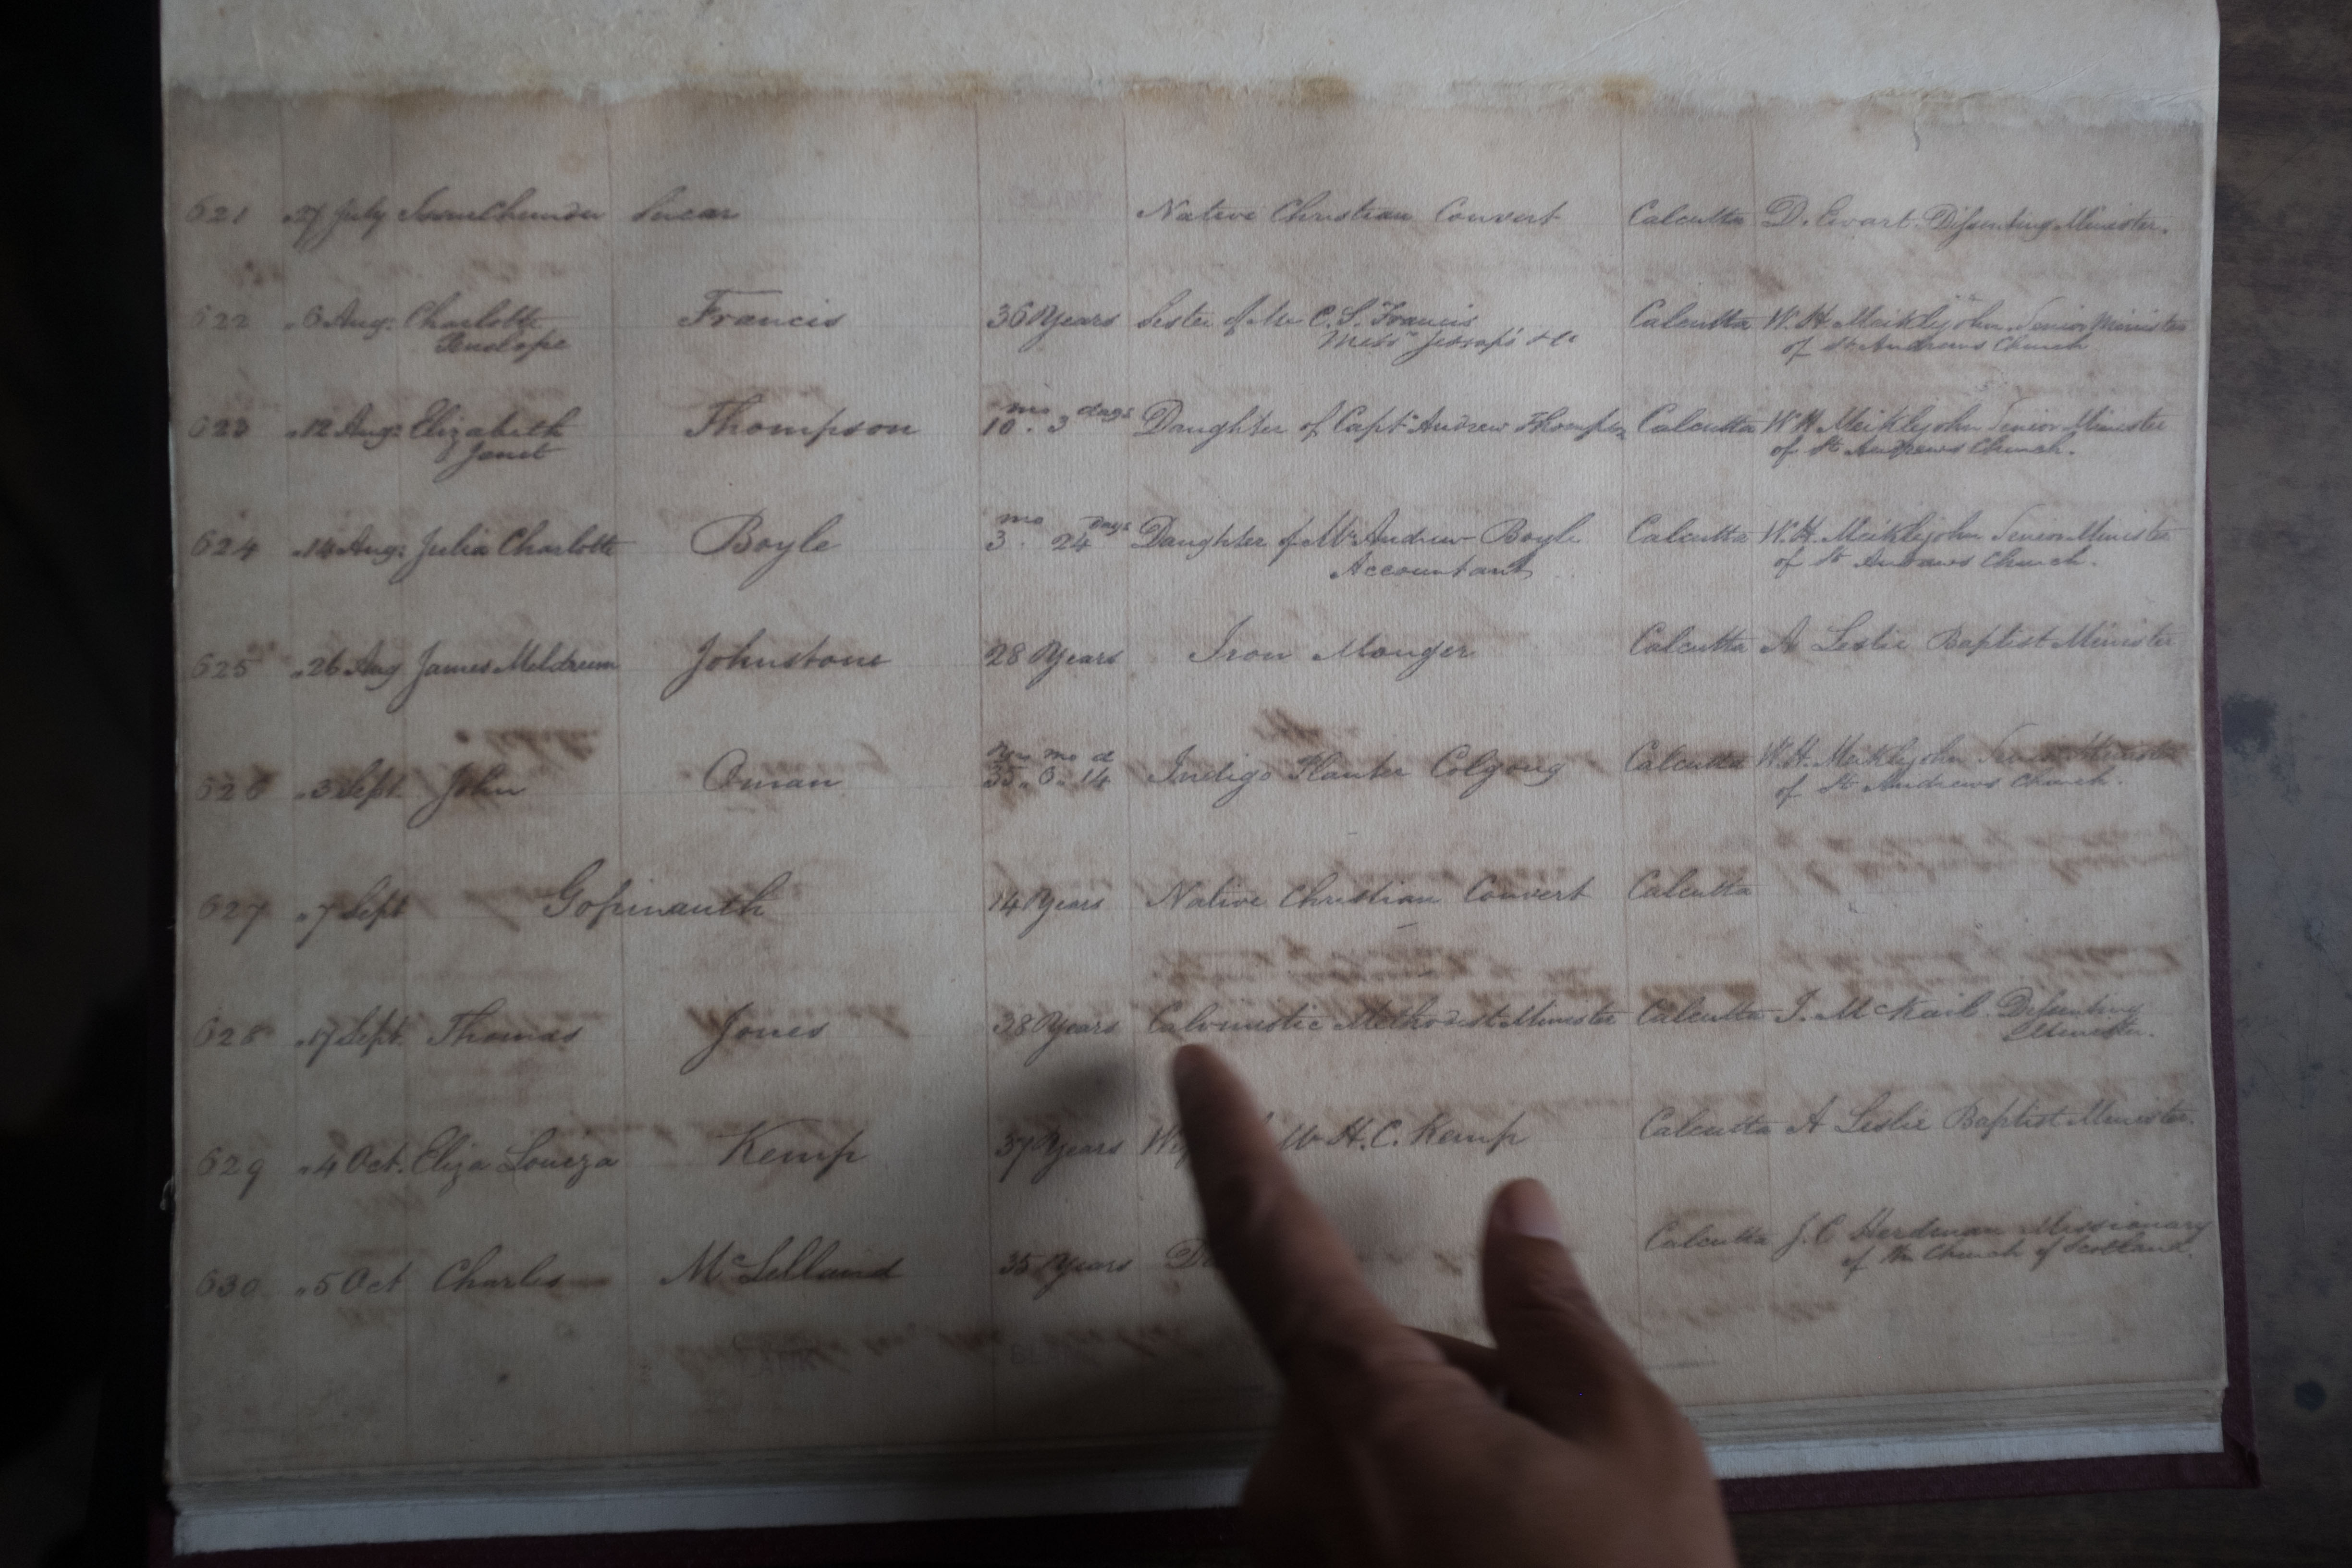 621 " 27 July Issurchunder Sircar Native Christian Convert Calcutta D. Ewart Dissenting Minister.
622 " 6 Aug: Charlotte Francis 36 Years Sister of Mr C. S. Francis Calcutta W. H. Meiklejohn Senior Minister
Penelope Messrs Jessop's & Co of St Andrews Church
mo days
623 " 12 Aug: Elizabeth Thompson 10 . 3 Daughter of Captn Andrew Thompson Calcutta W H Meiklejohn Senior Minister
Janet of St Andrews Church.
mo days
624 " 14 Aug: Julia Charlotte Boyle 3 . 24 Daughter of Mr Andrew Boyle Calcutta W. H. Meiklejohn Senior Minister
Accountant of St Andrews Church.
625 " 26 Aug James Meldrum Johnstone 28 Years Iron Monger Calcutta A Leslie Baptist Minister
mo d
626 " 3 Sept John Oman 14 Indigo Planter Colgong Calcutta W. H. Meiklejohn Senior Minister
of St Andrews Church.
627 " 7 Sept Gopinauth 14 Years Native Christian Convert Calcutta
628 " 17 Sept. Thomas Jones 38 Years Calvinistic Methodist Minister Calcutta J. McKail Dissenting
Minister.
629 " 4 Oct. Eliza Louiza Kemp 37 Years Mr H. C. Kemp Calcutta A Leslie Baptist Minister.
630 " 5 Oct Charles McLelland 35 Years Calcutta J. C Herdman Missionary
of the Church of Scotland.